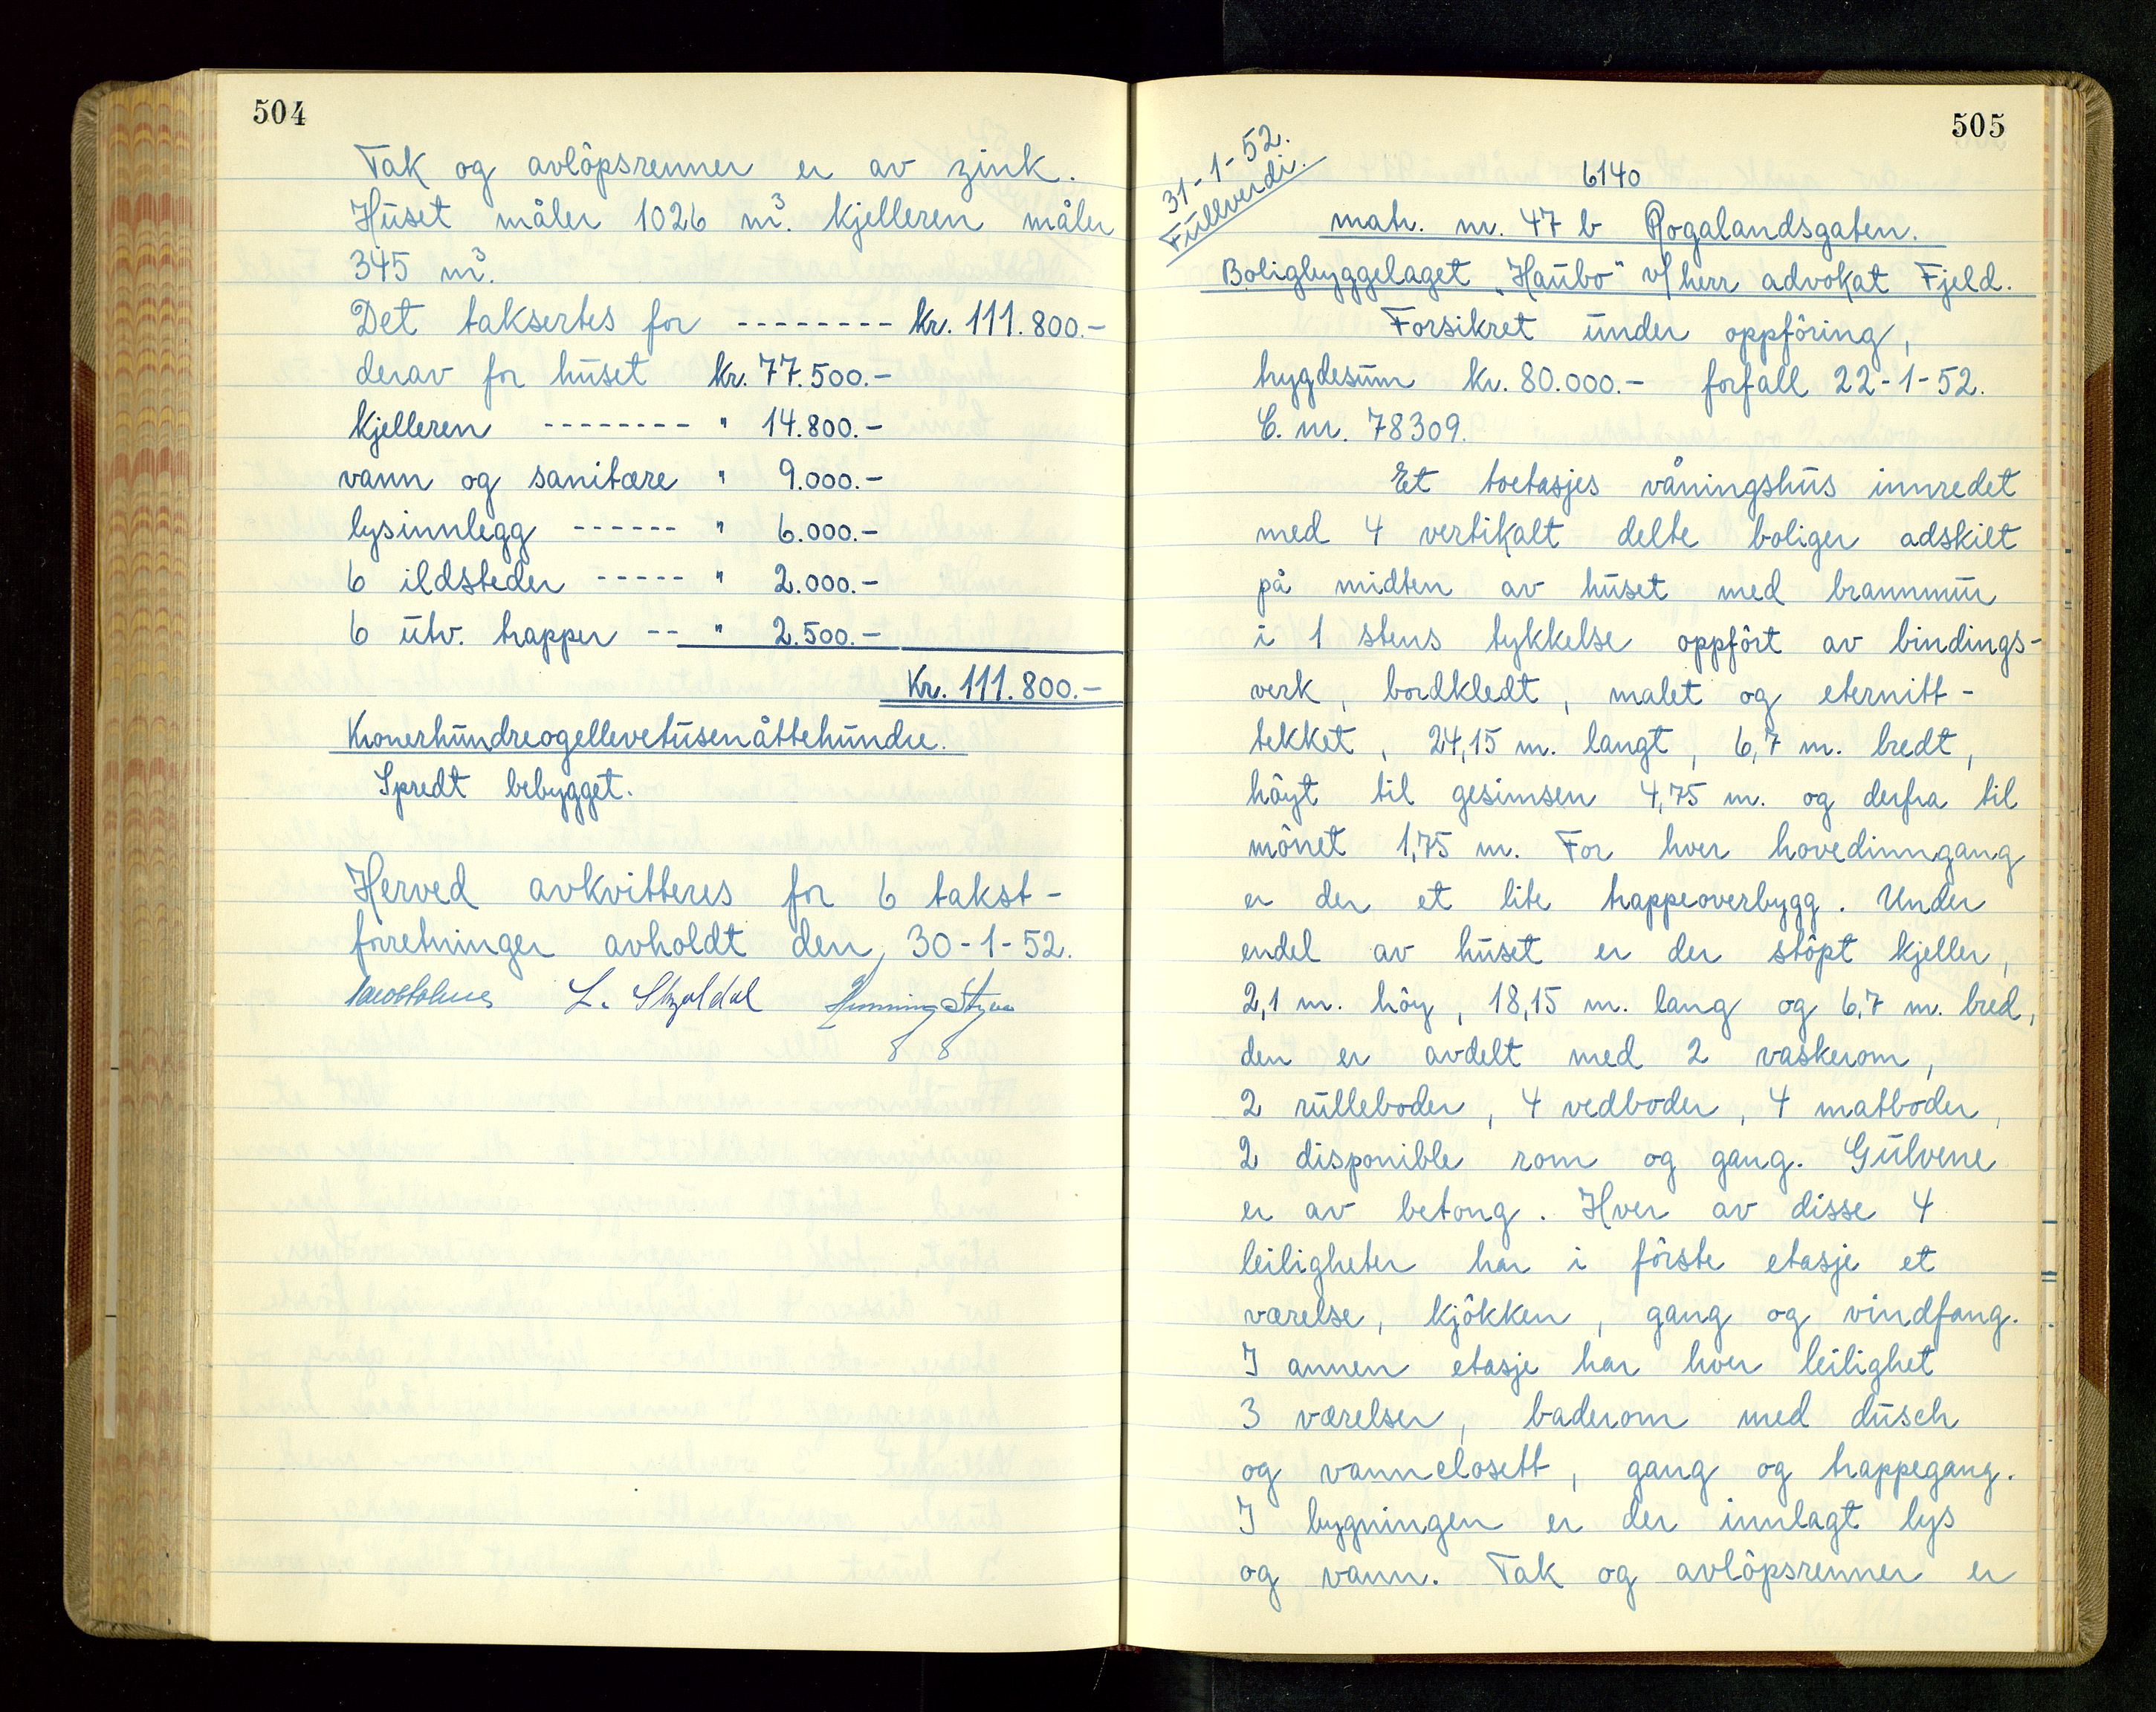 504
Tak og avlôpsrenner er av zink.
Huset måler 1026 m³. kjelleren måler
345 m³.
Det taksertes for -------- kr. 111.800.-
derav for huset kr. 77.500.-
kjelleren -------- " 14.800.-
vann og sanitære " 9.000.-
lysinnlegg ------ " 6.000.-
6 ildsteder ----- " 2.000.-
6 utv. trapper -- " 2.500.-
Kr. 111.800.-
Kronerhundreogellevetusenåttehundre.
Spredt bebygget.
Herved avkvitteres for 6 takst-
forretninger avholdt den, 30-1-52.
L. Skjoldal
505
31-1-52.
Fullverdi.
6140
matr. nr. 47 b Rogalandsgaten.
Boligbyggelaget „Haubo" v/ herr advokat Fjeld.
Forsikret under oppfôring,
bygdesum kr. 80.000.- forfall 22-1-52.
C. nr. 78309.
Et toetasjes våningshus innredet
med 4 vertikalt delte boliger adskilt
på midten av huset med brannmur
i 1 stens tykkelse oppfôrt av bindings-
verk, bordkledt, malet og eternitt-
tekket, 24,15 m. langt, 6,7 m. bredt,
hôyt til gesimsen 4,75 m. og derfra til
mônet 1,75 m. For hver hovedinngang
er der et lite trappeoverbygg. Under
endel av huset er der stôpt kjeller,
2,1 m. hôy, 18,15 m. lang og 6,7 m. bred,
den er avdelt med 2 vaskerom,
2 rulleboder, 4 vedboder, 4 matboder,
2 disponible rom og gang. Gulvene
er av betong. Hver av disse 4
leiligheter har i fôrste etasje et
værelse, kjôkken, gang og vindfang.
I annen etasje har hver leilighet
3 værelser, baderom med dusch
og vannclosett, gang og trappegang.
I bygningen er der innlagt lys
og vann. Tak og avlôpsrenner er